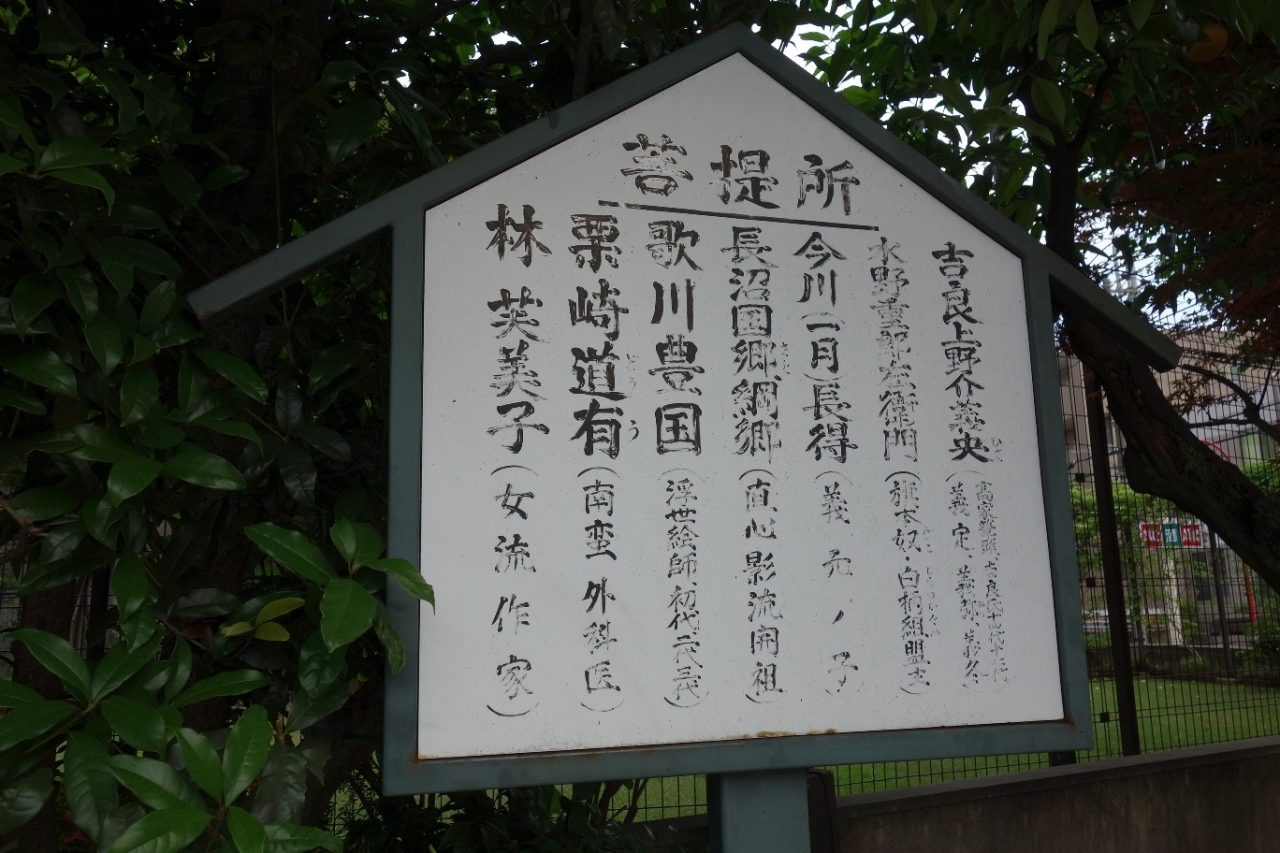 菩提所
吉良上野介義央
高家筆頭、吉良氏十七代
義定、義弥、義冬
水野重郎左衛門(旗本奴、白柄組盟主)
今川(一月)長得(義元ノ子)
長沼国郷綱郷(直心影流開祖)
歌川豊国(浮世絵師、初代二代三代)
栗崎道有(南蛮外科医)
どう う
林芙美子(女流作家)